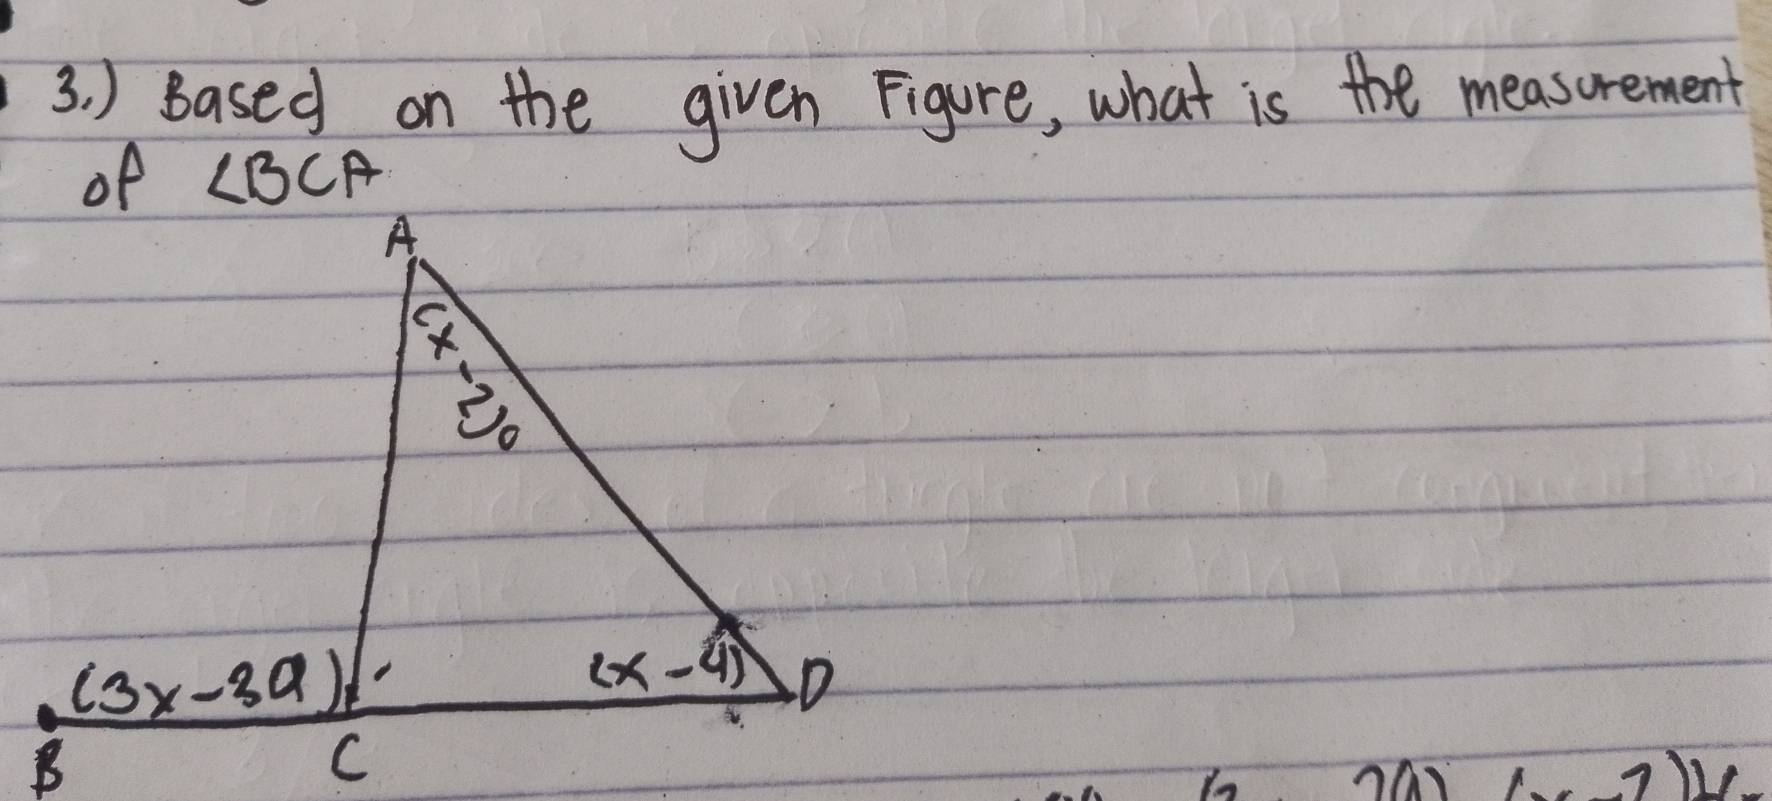 3.) Based on the given Figure, what is the measurement
of ∠BCA
A
(x-2)°
(3x-39)
(x-4)
D
B
C